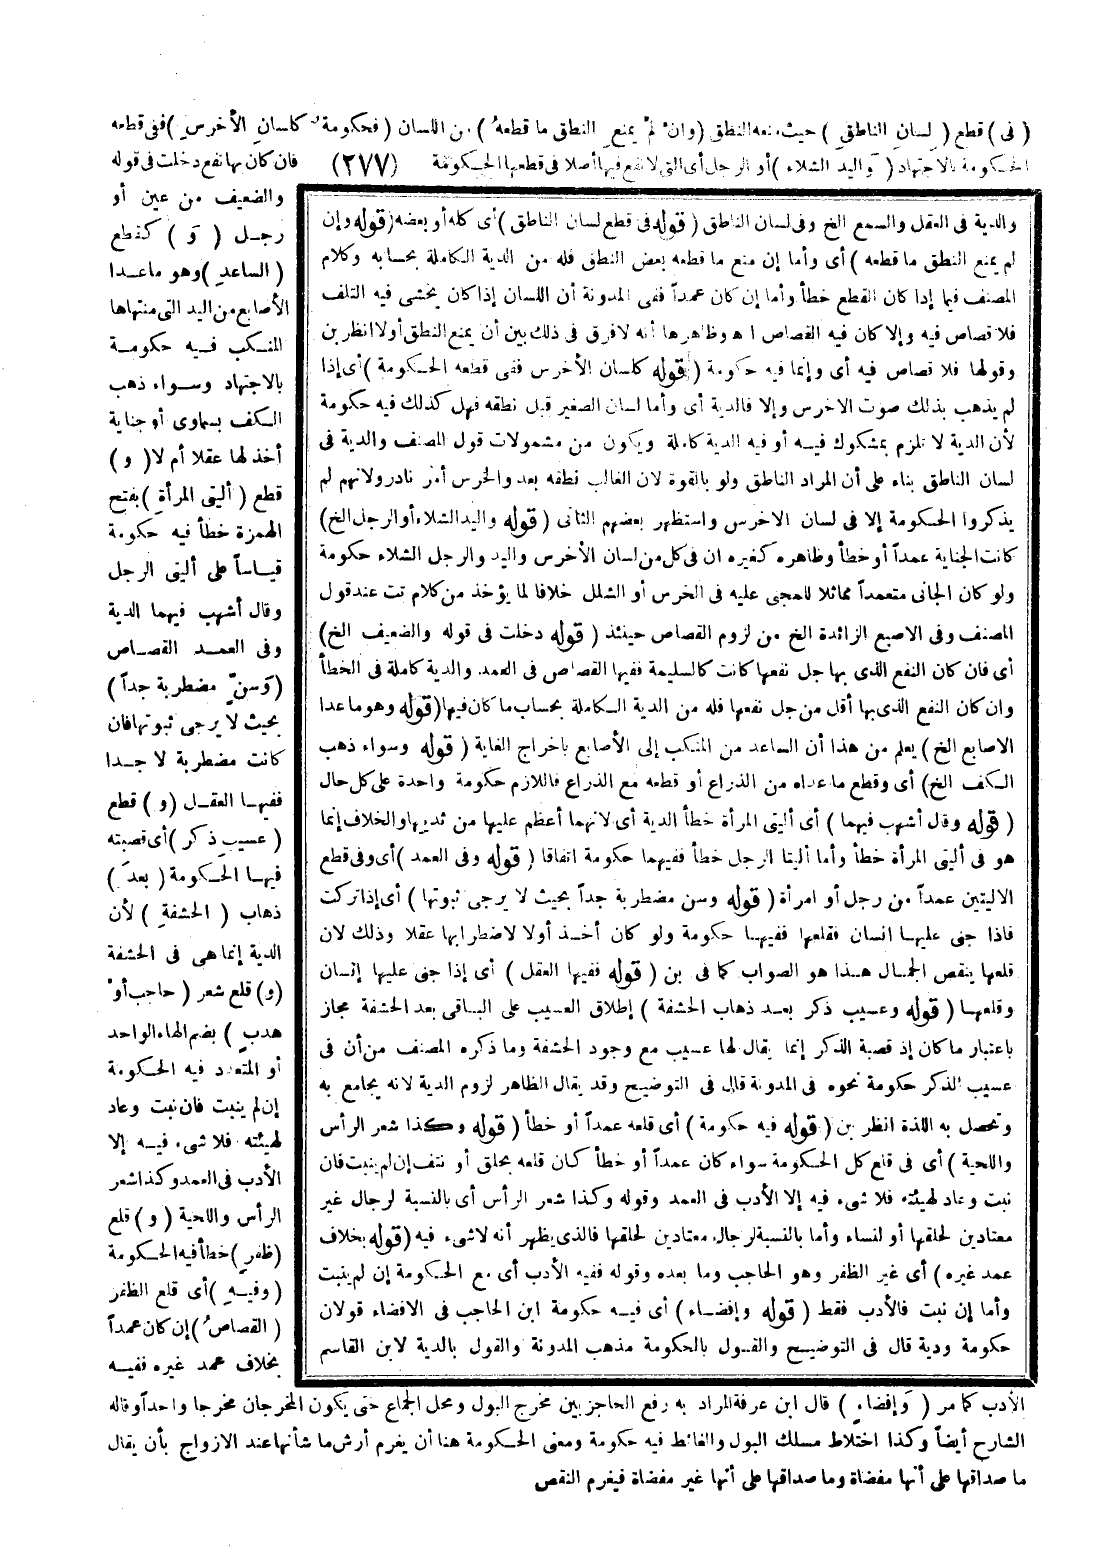 ( فى ) قطع ( لسان الناطق ) حيث منعه النطق ( وان لم يمنع النطق ما قطعه ) من اللسان ( فحكومة كلسان الأخرس ) ففى قطعه
الحكومة بالاجتهاد ( واليد الشلاء ) أو الرجل أى التى لا نفع فيها أصلا فى قطعها الحكومة (٢٧٧) فان كان بها نفع دخلت فى قوله
والضعيف من عين أو
رجل ( و ) كقطع
( الساعد ) وهو ماعدا
الأصابع من اليد التى منتهاها
المنكب فيه حكومة
بالاجتهاد وسواء ذهب
الكف بسماوى أو جناية
أخذ لها عقلا أم لا ( و )
قطع ( أليتى المرأة ) بفتح
الهمزة خطأ فيه حكومة
قياساً على أليتى الرجل
وقال أشهب فيهما الدية
وفى العمد القصاص
( وسن مضطربة جداً )
بحيث لا يرجى ثبوتها فان
كانت مضطربة لا جدا
ففيها العقل ( و ) قطع
( عسيب ذكر ) أى قصبته
فيها الحكومة ( بعد )
ذهاب ( الحشفة ) لأن
الدية إنما هى فى الحشفة
( و ) قلع شعر ( حاجب أو
هدب ) بضم الهاء الواحد
أو المتعدد فيه الحكومة
إن لم ينبت فان نبت وعاد
لهيئته فلا شىء فيه إلا
الأدب فى العمد وكذا شعر
الرأس واللحية ( و ) قلع
( ظفر ) خطأ فيه الحكومة
( وفيه ) أى قلع الظفر
( القصاص ) إن كان عمداً
بخلاف عمد غيره ففيه
الأدب كما مر ( وإفضاء ) قال ابن عرفة المراد به رفع الحاجز بين مخرج البول ومحل الجماع حتى يكون المخرجان مخرجا واحداً وقاله
الشارح أيضاً وكذا اختلاط مسلك البول والغائط فيه حكومة ومعنى الحكومة هنا أن يغرم أرش ما شأنها عند الازواج بأن يقال
ما صداقها على أنها مفضاة وما صداقها على أنها غير مفضاة فيغرم النقص
والدية فى العقل والسمع الخ وفى لسان الناطق ( قوله فى قطع لسان الناطق ) أى كله أو بعضه ( قوله وإن
لم يمنع النطق ما قطعه ) أى وأما إن منع ما قطعه بعض النطق فله من الدية الكاملة بحسابه وكلام
المصنف فيما إذا كان القطع خطأ وأما إن كان عمداً ففى المدونة أن اللسان إذا كان يخشى فيه التلف
فلا قصاص فيه وإلا كان فيه القصاص اه وظاهرها أنه لا فرق فى ذلك بين أن يمنع النطق أولا انظر بن
وقولها فلا قصاص فيه أى وإنما فيه حكومة ( قوله كلسان الأخرس ففى قطعه الحكومة ) أى إذا
لم يذهب بذلك صوت الاخرس وإلا فالدية أى وأما لسان الصغير قبل نطقه فهل كذلك فيه حكومة
لأن الدية لا تلزم بمشكوك فيه أو فيه الدية كاملة ويكون من مشمولات قول المصنف والدية فى
لسان الناطق بناء على أن المراد الناطق ولو بالقوة لان الغالب نطقه بعد والخرس أمر نادر ولانهم لم
يذكروا الحكومة إلا فى لسان الاخرس واستظهر بعضهم الثانى ( قوله واليد الشلاء أو الرجل الخ )
كانت الجناية عمداً أو خطأ وظاهره كغيره ان فى كل من لسان الأخرس واليد والرجل الشلاء حكومة
ولو كان الجانى متعمداً مماثلا للمجنى عليه فى الخرس أو الشلل خلافا لما يؤخذ من كلام تت عند قول
المصنف وفى الاصبع الزائدة الخ من لزوم القصاص حينئذ ( قوله دخلت فى قوله والضعيف الخ )
أى فان كان النفع الذى بها جل نفعها كانت كالسليمة ففيها القصاص فى العمد والدية كاملة فى الخطأ
وان كان النفع الذى بها أقل من جل نفعها فله من الدية الكاملة بحساب ما كان فيها ( قوله وهو ما عدا
الاصابع الخ ) يعلم من هذا أن الساعد من المنكب إلى الأصابع باخراج الغاية ( قوله وسواء ذهب
الكف الخ ) أى وقطع ما عداه من الذراع أو قطعه مع الذراع فاللازم حكومة واحدة على كل حال
( قوله وقال أشهب فيهما ) أى أليتى المرأة خطأ الدية أى لانهما أعظم عليها من ثدييها والخلاف إنما
هو فى أليتى المرأة خطأ وأما أليتا الرجل خطأ ففيهما حكومة اتفاقا ( قوله وفى العمد ) أى وفى قطع
الاليتين عمداً من رجل أو امرأة ( قوله وسن مضطربة جداً بحيث لا يرجى ثبوتها ) أى إذا تركت
فاذا جنى عليها انسان فقلعها ففيها حكومة ولو كان أخذ أولا لاضطرابها عقلا وذلك لان
قلعها ينقص الجمال هذا هو الصواب كما فى بن ( قوله ففيها العقل ) أى إذا جنى عليها إنسان
وقلعها ( قوله وعسيب ذكر بعد ذهاب الحشفة ) إطلاق العسيب على الباقى بعد الحشفة مجاز
باعتبار ما كان إذ قصبة الذكر إنما يقال لها عسيب مع وجود الحشفة وما ذكره المصنف من أن فى
عسيب الذكر حكومة نحوه فى المدونة قال فى التوضيح وقد يقال الظاهر لزوم الدية لانه يجامع به
وتحصل به اللذة انظر بن ( قوله فيه حكومة ) أى قلعه عمداً أو خطأ ( قوله وكذا شعر الرأس
واللحية ) أى فى قلع كل الحكومة سواء كان عمداً أو خطأ كان قلعه بحلق أو نتف إن لم ينبت فان
نبت وعاد لهيئته فلا شىء فيه إلا الأدب فى العمد وقوله وكذا شعر الرأس أى بالنسبة لرجال غير
معتادين لحلقها أو لنساء وأما بالنسبة لرجال معتادين لحلقها فالذى يظهر أنه لا شىء فيه ( قوله بخلاف
عمد غيره ) أى غير الظفر وهو الحاجب وما بعده وقوله ففيه الأدب أى مع الحكومة إن لم ينبت
وأما إن نبت فالأدب فقط ( قوله وإفضاء ) أى فيه حكومة ابن الحاجب فى الافضاء قولان
حكومة ودية قال فى التوضيح والقول بالحكومة مذهب المدونة والقول بالدية لابن القاسم